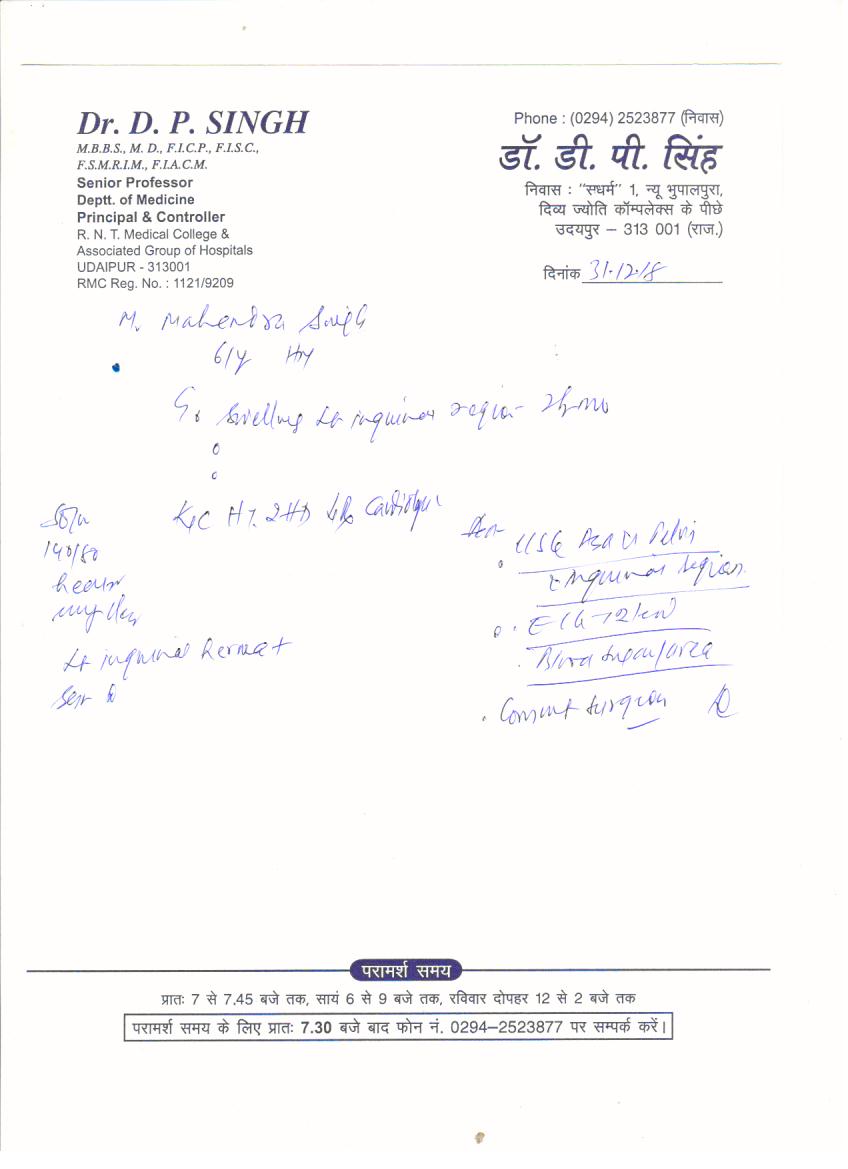 Dr. D. P. SINGH
M.B.B.S., M. D., F.I.C.P., F.I.S.C.,
F.S.M.R.I.M., F.I.A.C.M.
Senior Professor
Deptt. of Medicine
Principal & Controller
R. N. T. Medical College &
Associated Group of Hospitals
UDAIPUR - 313001
RMC Reg. No. : 1121/9209
Phone : (0294) 2523877 (निवास)
डॉ. डी. पी. सिंह
निवास : "सधर्म" 1, न्यू भुपालपुरा,
दिव्य ज्योति कॉम्पलेक्स के पीछे
उदयपुर – 313 001 (राज.)
दिनांक 31.12.18
M. Mahendra Singh
61y
Swelling Lt inguinal region
K/C Cardiology
140/80
heart
Lt inguinal hernia +
USG Pelvis
Inguinal region
ECG-12 lead
Blood Sugar/urea
Consult surgeon
परामर्श समय
प्रातः 7 से 7.45 बजे तक, सायं 6 से 9 बजे तक, रविवार दोपहर 12 से 2 बजे तक
परामर्श समय के लिए प्रातः 7.30 बजे बाद फोन नं. 0294–2523877 पर सम्पर्क करें।